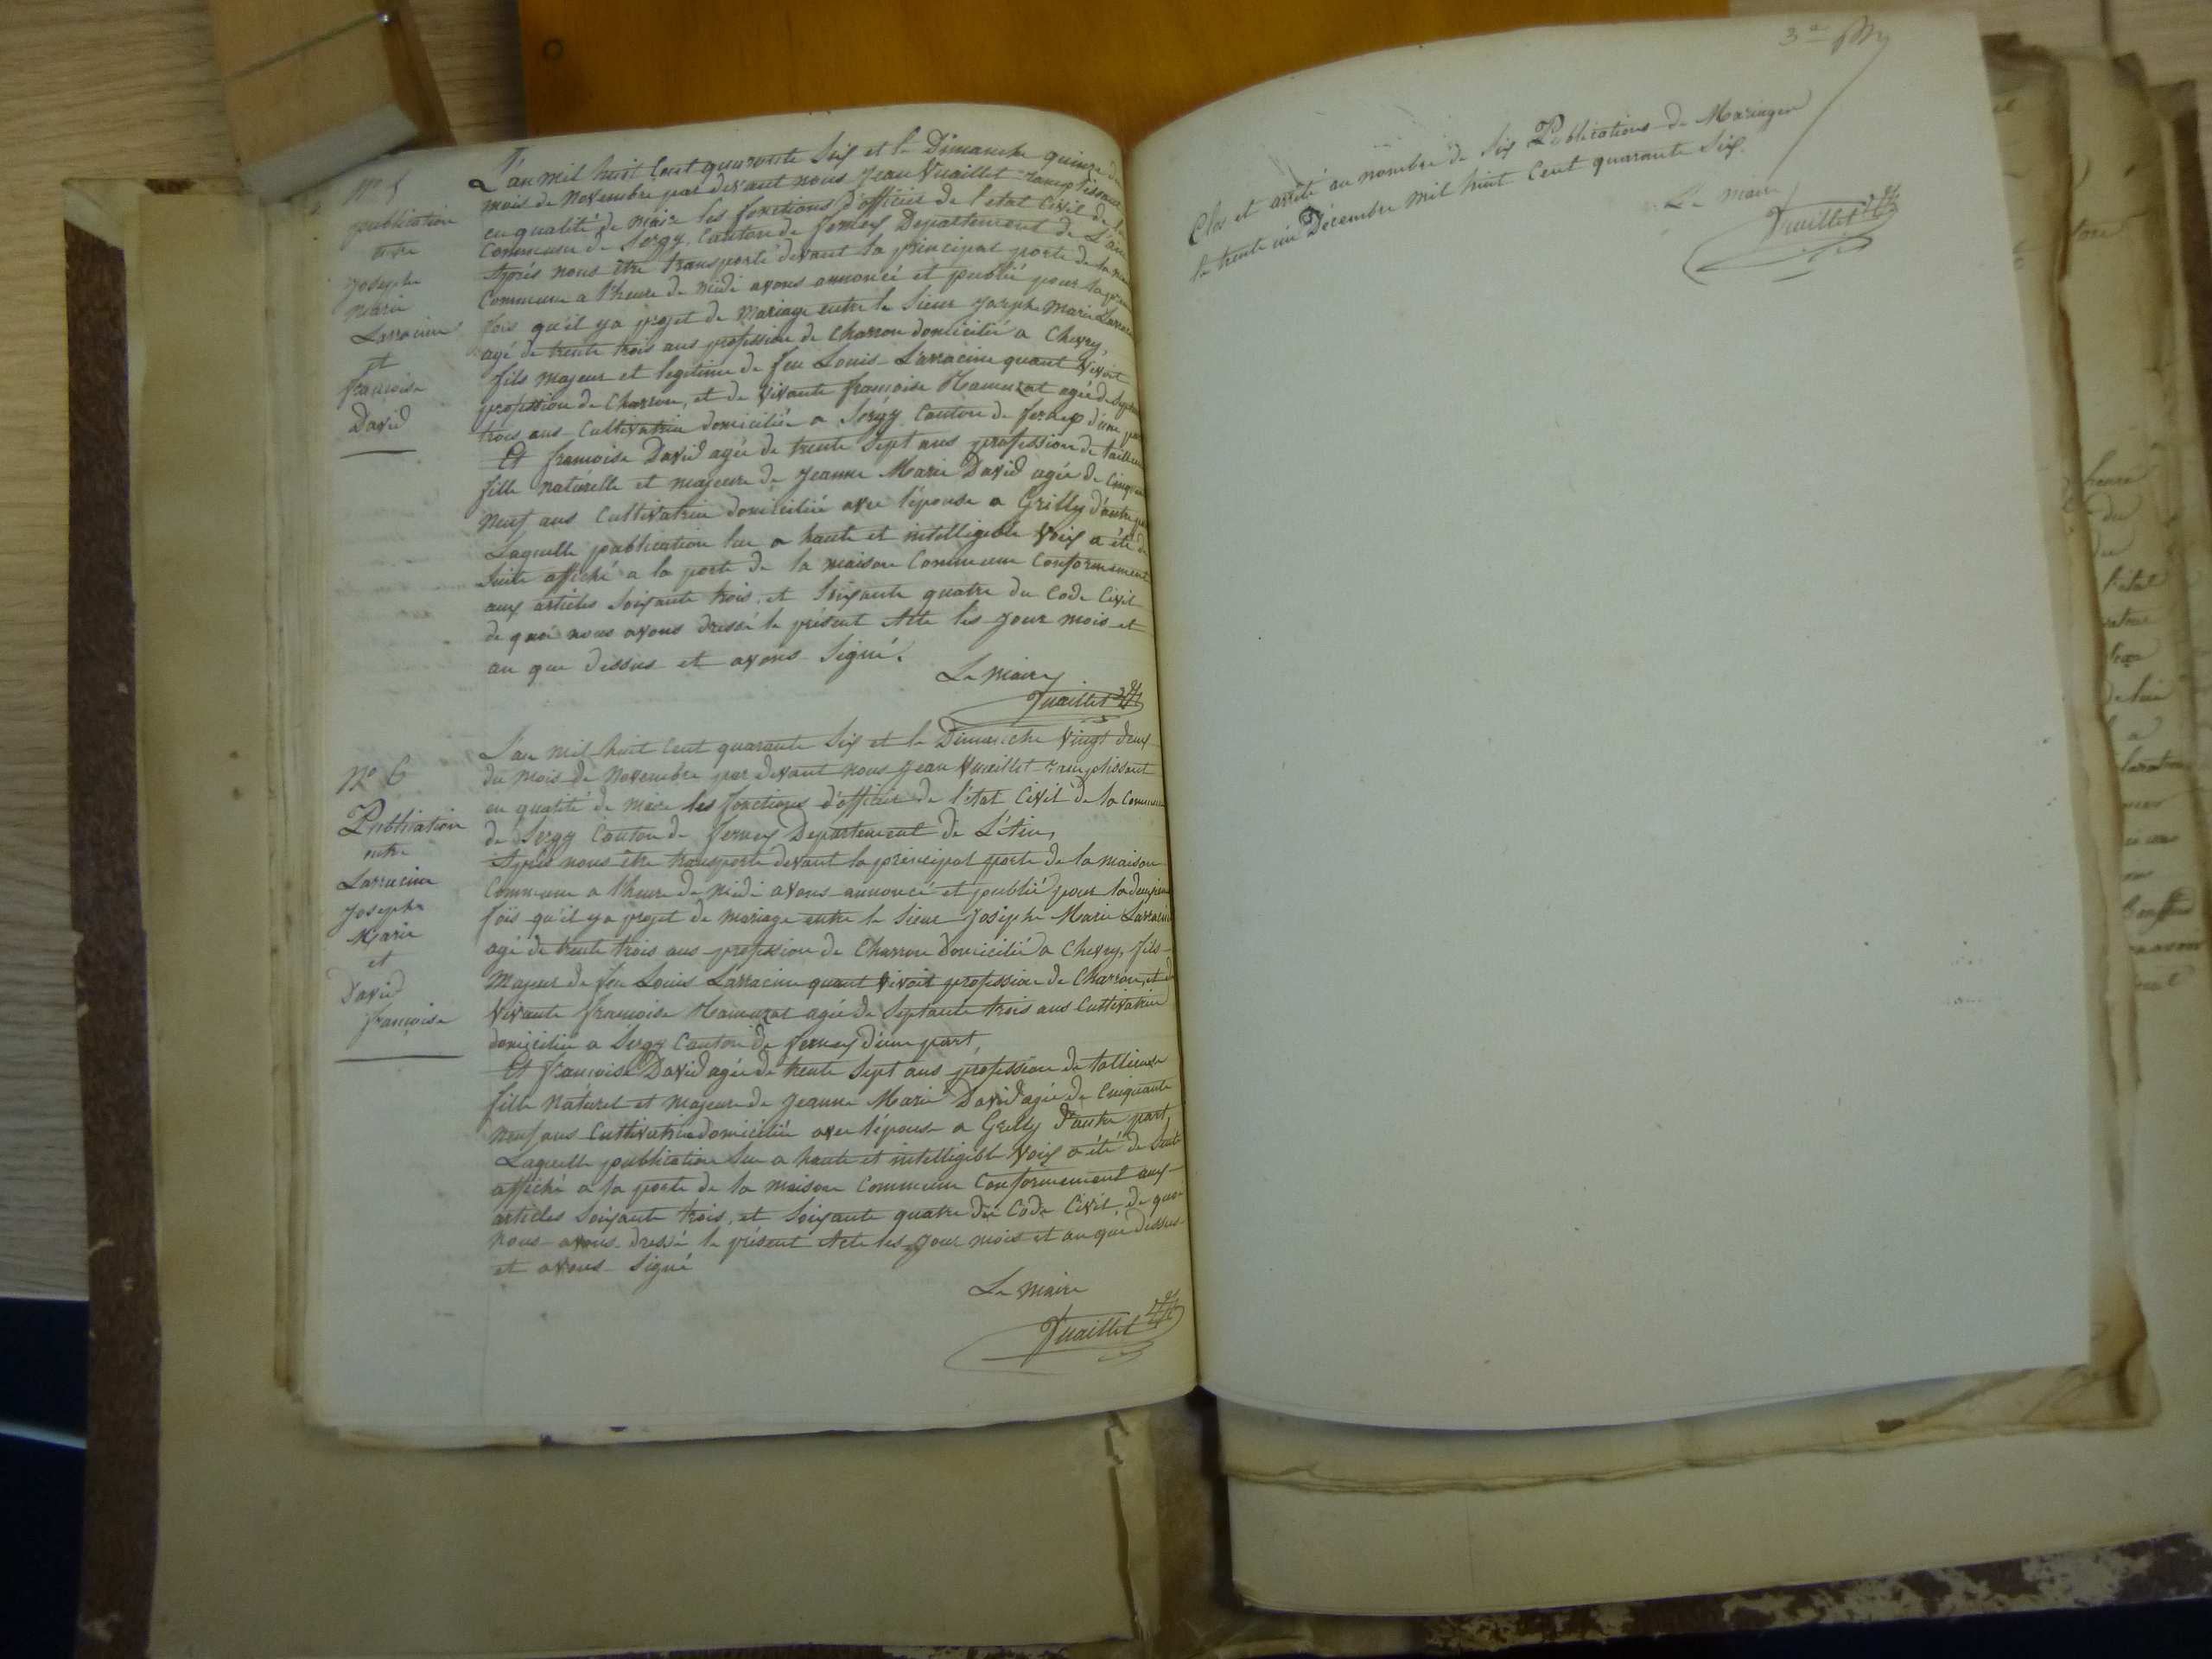 N° 5
publication
entre
Josephe
Marie
Larracine
et
françoise
David
L'an mil huit Cent quarante Six et le Dimanche quinze du
mois de Novembre par devant nous Jean Vuaillet remplissant
en qualité de maire les fonctions d'officier de l'état Civil de la
Commune de Sergy, Canton de ferney Departement de L'ain
Après nous être transporté devant la principal porte de la
Commune a l'heure de midi avons annoncé et publié pour la
fois qu'il y a projet de Mariage entre le Sieur Josephe Marie
agé de trente trois ans profession de Charron domicilié a Chevry,
fils majeur et legitime de feu Louis Larracine quant vivoit
profession de Charron, et de vivante françoise Hamuzat agée de
trois ans Cultivatrice domiciliée a Sergy Canton de ferney d'une
Et françoise David agée de trente Sept ans profession de
fille naturelle et majeure de Jeanne Marie David agée de
neuf ans Cultivatrice domiciliée avec l'épouse a Grilly d'autre
Laquelle publication lue a haute et intelligible voix a été de
Suite affiché a la porte de la maison Commune Conformement
aux articles Soixante trois, et Soixante quatre du Code Civil
de quoi nous avons dressé le présent Acte les jour mois et
an que dessus et avons Signé.
Le Maire
Vuaillet
N° 6
Publication
entre
Larracine
Josephe
Marie
et
David
françoise
L'an mil huit Cent quarante Six et le Dimanche vingt deux
du mois de Novembre par devant nous Jean Vuaillet remplissant
en qualité de maire les fonctions d'officier de l'état Civil de la Commune
de Sergy Canton de ferney Departement de L'Ain,
Après nous être transporté devant la principal porte de la maison
Commune a l'heure de midi avons annoncé et publié pour la deuxieme
fois qu'il y a projet de mariage entre le Sieur Josephe Marie Larracine
agé de trente trois ans profession de Charron domicilié a Chevry, fils
Majeur de feu Louis Larracine quant vivoit profession de Charron, et de
vivante françoise Hamuzat agée de Septante trois ans Cultivatrice
domiciliée a Sergy Canton de ferney d'une part,
Et françoise David agée de trente Sept ans profession de tallieuse
fille naturel et majeure de Jeanne Marie David agée de Cinquante
neuf ans Cultivatrice domiciliée avec l'épouse a Grilly d'autre part,
Laquelle publication lue a haute et intelligible voix a été de Suite
affiché a la porte de la maison Commune Conformement aux
articles Soixante trois, et Soixante quatre du Code Civil, de quoi
nous avons dressé le présent Acte les jour mois et an que dessus
et avons Signé
Le Maire
Vuaillet
Clos et arrêté au nombre de Six Publications de Mariages
le trente un Décembre mil huit Cent quarante Six.
Le Maire
Vuaillet